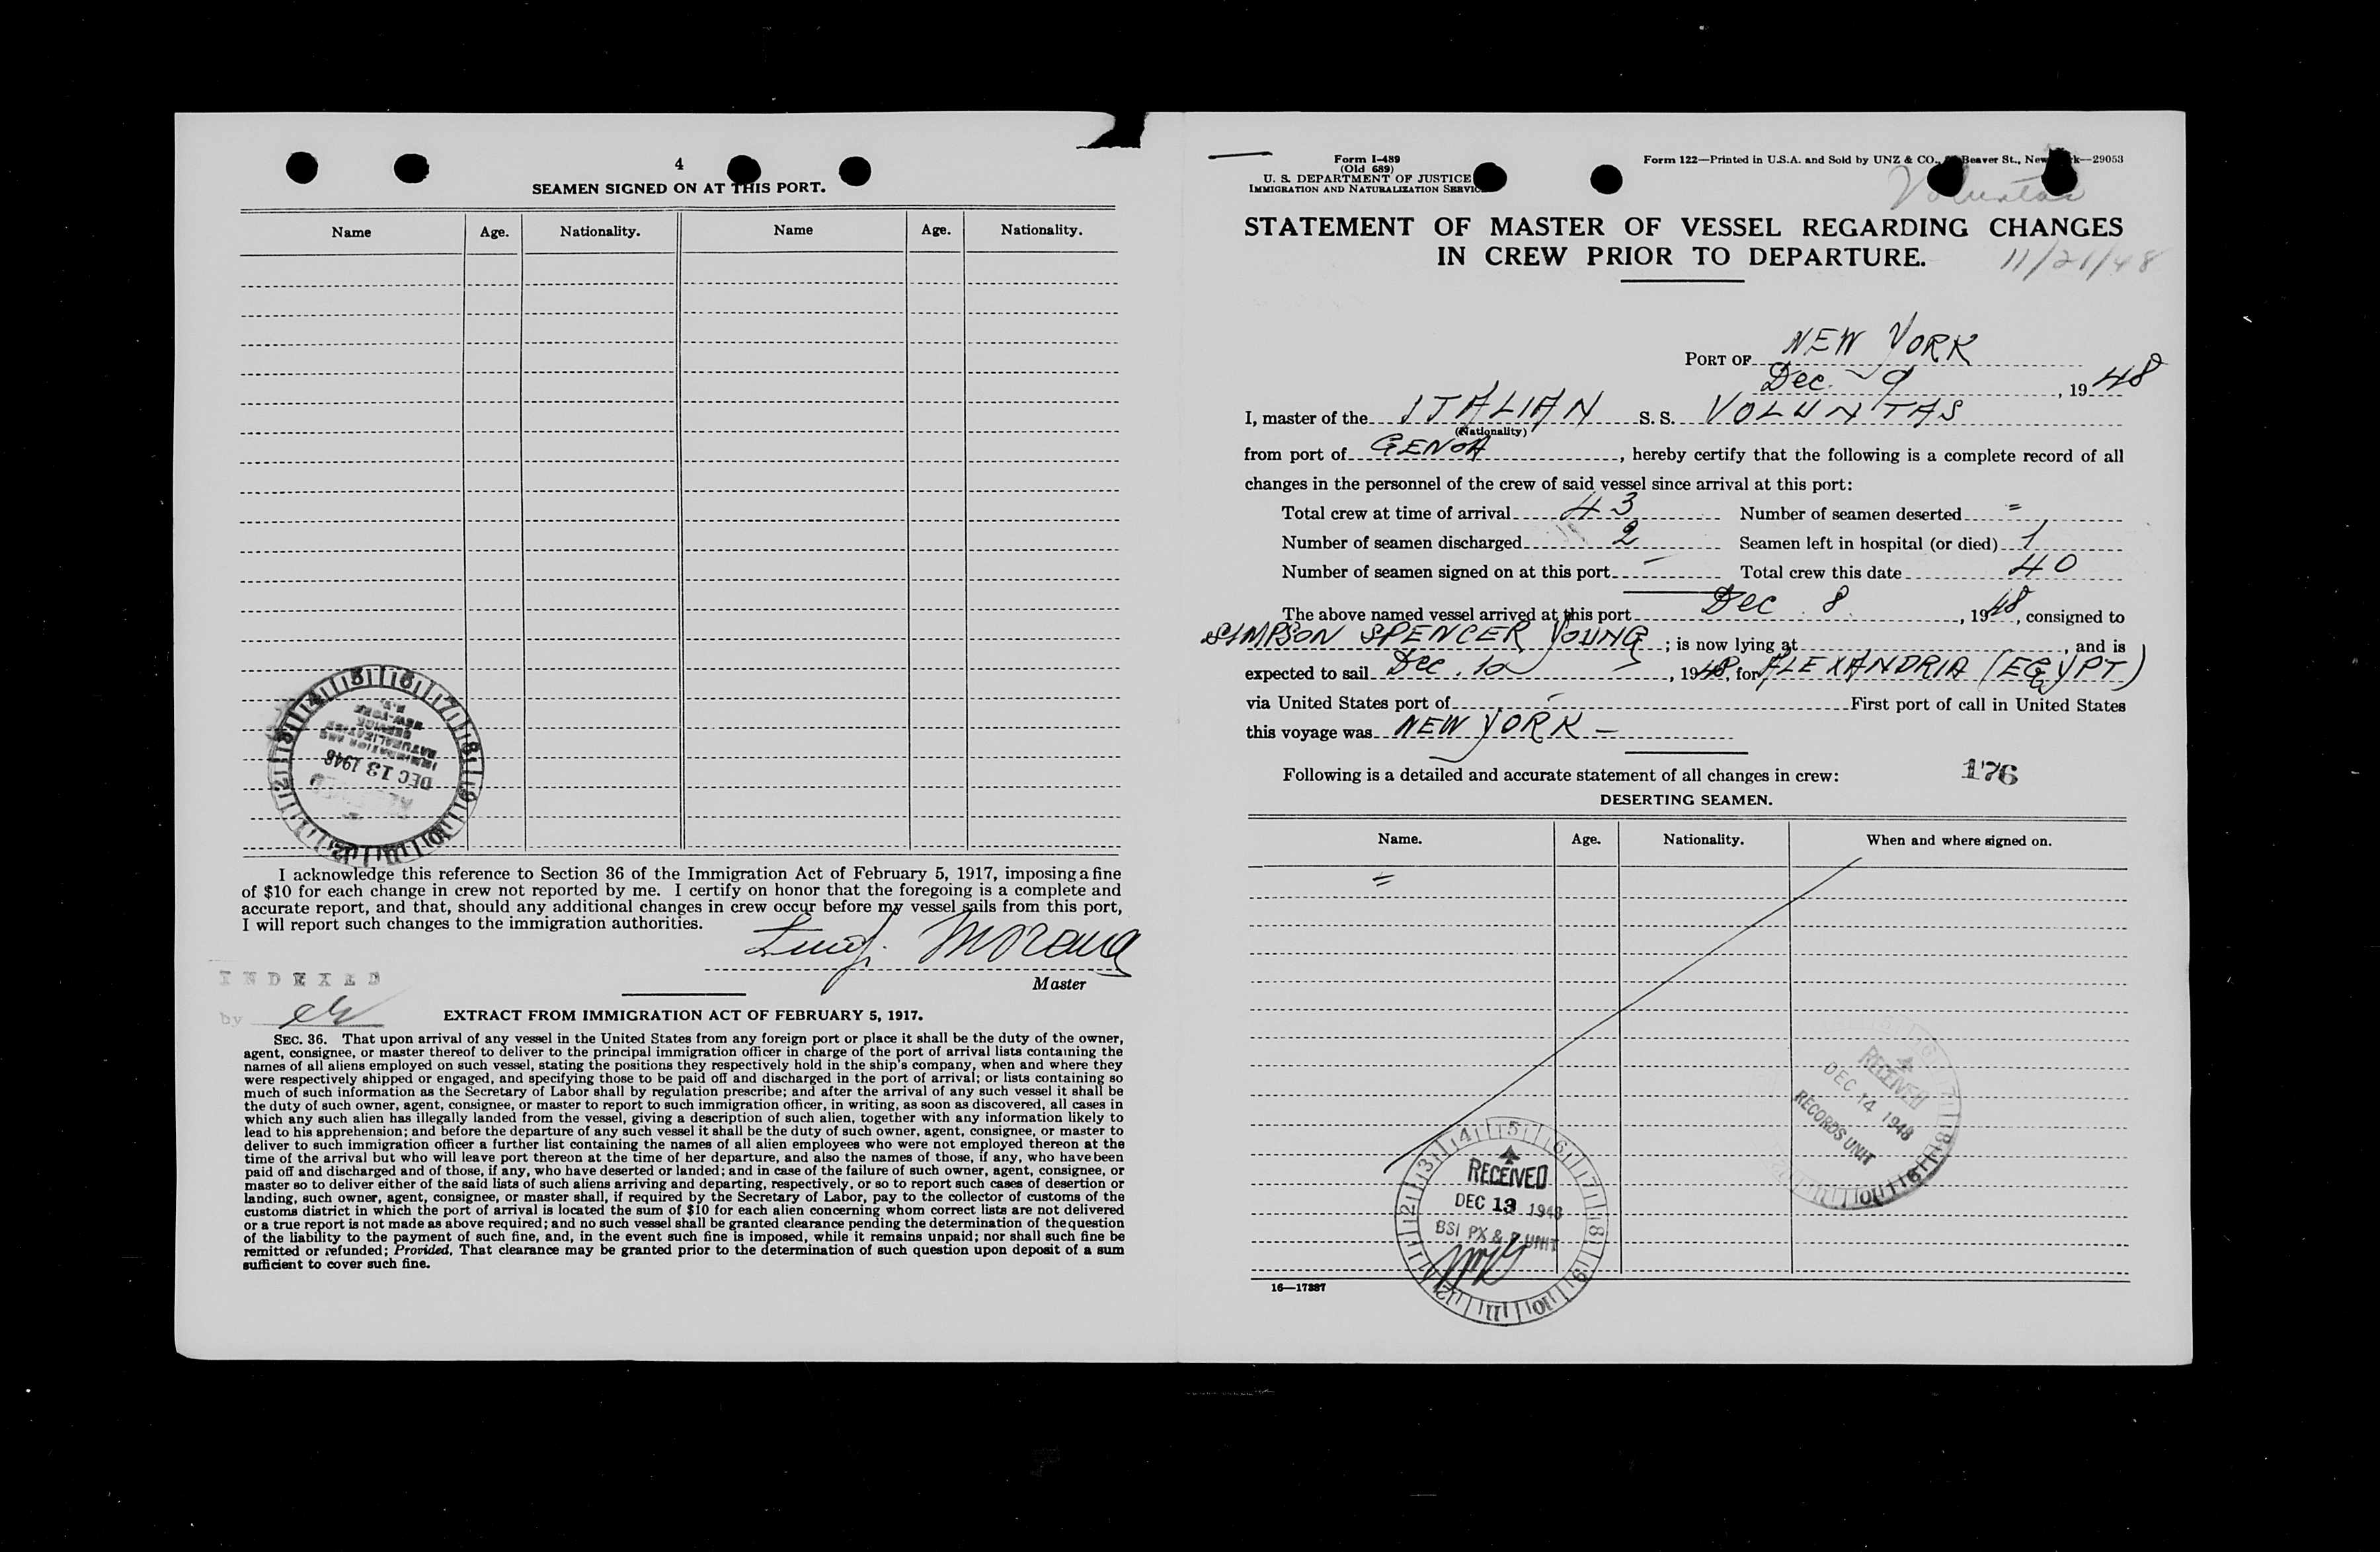 4
SEAMEN SIGNED ON AT THIS PORT.
Name Age. Nationality. Name Age. Nationality.
DEC 13 1948
IMMIGRATION AND
NATURALIZATION
SERVICE
NEW-YORK
N.Y.
I acknowledge this reference to Section 36 of the Immigration Act of February 5, 1917, imposing a fine
of $10 for each change in crew not reported by me. I certify on honor that the foregoing is a complete and
accurate report, and that, should any additional changes in crew occur before my vessel sails from this port,
I will report such changes to the immigration authorities.
Luigi
Master
INDEXED
by
EXTRACT FROM IMMIGRATION ACT OF FEBRUARY 5, 1917.
SEC. 36. That upon arrival of any vessel in the United States from any foreign port or place it shall be the duty of the owner,
agent, consignee, or master thereof to deliver to the principal immigration officer in charge of the port of arrival lists containing the
names of all aliens employed on such vessel, stating the positions they respectively hold in the ship's company, when and where they
were respectively shipped or engaged, and specifying those to be paid off and discharged in the port of arrival; or lists containing so
much of such information as the Secretary of Labor shall by regulation prescribe; and after the arrival of any such vessel it shall be
the duty of such owner, agent, consignee, or master to report to such immigration officer, in writing, as soon as discovered, all cases in
which any such alien has illegally landed from the vessel, giving a description of such alien, together with any information likely to
lead to his apprehension; and before the departure of any such vessel it shall be the duty of such owner, agent, consignee, or master to
deliver to such immigration officer a further list containing the names of all alien employees who were not employed thereon at the
time of the arrival but who will leave port thereon at the time of her departure, and also the names of those, if any, who have been
paid off and discharged and of those, if any, who have deserted or landed; and in case of the failure of such owner, agent, consignee, or
master so to deliver either of the said lists of such aliens arriving and departing, respectively, or so to report such cases of desertion or
landing, such owner, agent, consignee, or master shall, if required by the Secretary of Labor, pay to the collector of customs of the
customs district in which the port of arrival is located the sum of $10 for each alien concerning whom correct lists are not delivered
or a true report is not made as above required; and no such vessel shall be granted clearance pending the determination of the question
of the liability to the payment of such fine, and, in the event such fine is imposed, while it remains unpaid; nor shall such fine be
remitted or refunded; Provided, That clearance may be granted prior to the determination of such question upon deposit of a sum
sufficient to cover such fine.
Form I-489
(Old 689)
U. S. DEPARTMENT OF JUSTICE
IMMIGRATION AND NATURALIZATION SERVICE
Form 122—Printed in U.S.A. and Sold by UNZ & CO., Beaver St., New York—29053
Voluntas
STATEMENT OF MASTER OF VESSEL REGARDING CHANGES
IN CREW PRIOR TO DEPARTURE.
11/21/48
PORT OF NEW YORK
Dec. 9, 1948
I, master of the ITALIAN S. S. VOLUNTAS
(Nationality)
from port of GENOA, hereby certify that the following is a complete record of all
changes in the personnel of the crew of said vessel since arrival at this port:
Total crew at time of arrival 43 Number of seamen deserted =
Number of seamen discharged 2 Seamen left in hospital (or died) 1
Number of seamen signed on at this port — Total crew this date 40
The above named vessel arrived at this port Dec. 8, 1948, consigned to
SIMPSON SPENCER YOUNG; is now lying at , and is
expected to sail Dec. 10, 1948, for ALEXANDRIA (EGYPT)
via United States port of - First port of call in United States
this voyage was NEW YORK —
Following is a detailed and accurate statement of all changes in crew:
176
DESERTING SEAMEN.
Name. Age. Nationality. When and where signed on.
=
RECEIVED
DEC 14 1948
RECORDS UNIT
RECEIVED
DEC 13 1948
BSI PX & UNIT
16—17887